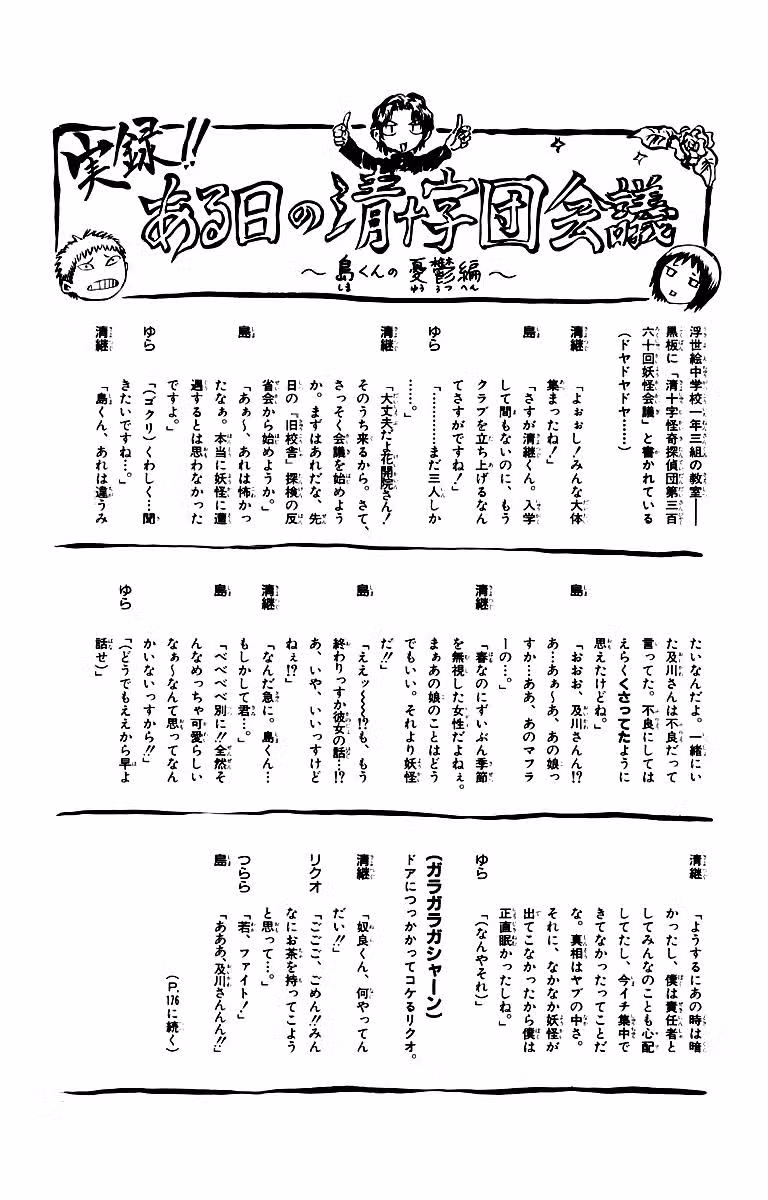 実録!!
ある日の清十字団会議
～島くんの憂鬱編～
浮世絵中学校一年三組の教室――
黒板に「清十字怪奇探偵団第三百
六十回妖怪会議」と書かれている
(ドヤドヤドヤ……)
清継 「よぉおし!みんな大体
集まったね!」
島 「さすが清継くん。入学
して間もないのに、もう
クラブを立ち上げるなん
てさすがですね!」
ゆら 「………まだ三人しか
……。」
清継 「大丈夫だよ花開院さん!
そのうち来るから。さて、
さっそく会議を始めよう
か。まずはあれだな、先
日の『旧校舎』探検の反
省会から始めようか。」
島 「あぁ～、あれは怖かっ
たなぁ。本当に妖怪に遭
遇するとは思わなかった
ですよ。」
ゆら 「(ゴクリ)くわしく…聞
きたいですね…。」
清継 「島くん、あれは違うみ
たいなんだよ。一緒にい
た及川さんは不良だって
言ってた。不良にしては
えらくくさってたように
思えたけどね。」
島 「おおお、及川さんん!?
あ…あぁ～あ、あの娘っ
すか…ああ、あのマフラ
ーの…。」
清継 「春なのにずいぶん季節
を無視した女性だよねぇ。
まぁあの娘のことはどう
でもいい。それより妖怪
だ!!」
島 「ええッ～～!?も、もう
終わりっすか彼女の話…!?
あ、いや、いいっすけど
ねぇ!?」
清継 「なんだ急に。島くん…
もしかして君…。」
島 「べべべべ別に!!全然そ
んなめっちゃ可愛らしい
なぁ～なんて思ってなん
かいないっすから!!」
ゆら 「(どうでもええから早よ
話せ)」
清継 「ようするにあの時は暗
かったし、僕は責任者と
してみんなのことも心配
してたし、今イチ集中で
きてなかったってことだ
な。真相はヤブの中さ。
それに、なかなか妖怪が
出てこなかったから僕は
正直眠かったしね。」
ゆら 「(なんやそれ)」
(ガラガラガシャーン)
ドアにつっかかってコケるリクオ。
清継 「奴良くん、何やってん
だい!!」
リクオ 「ごごご、ごめん!!みん
なにお茶を持ってこよう
と思って…。」
つらら 「若、ファイト!」
島 「あああ、及川さんんん!!」
(P.176に続く)